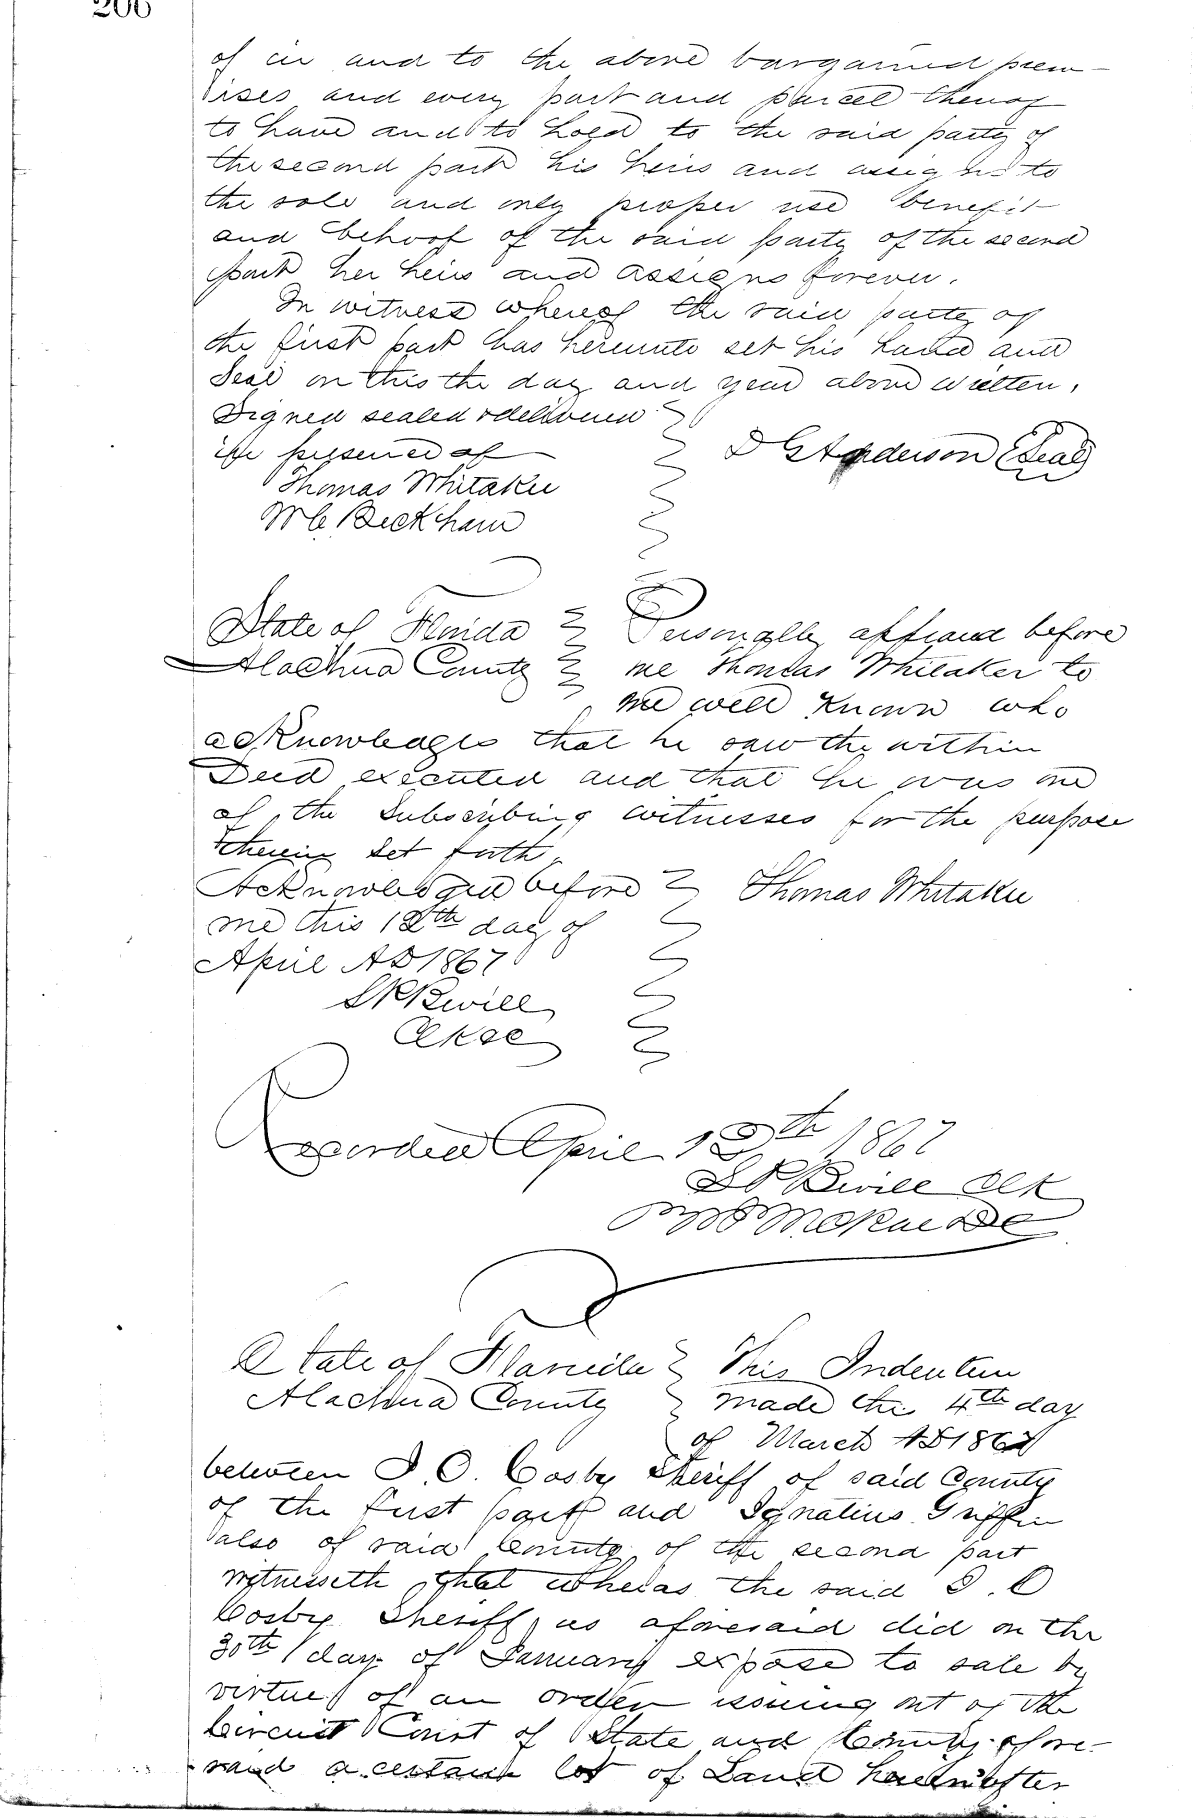 206
of in and to the above bargained prem-
ises and every part and parcel thereof
to have and to hold to the said party of
the second part his heirs and assigns to
the sole and only proper use benefit
and behoof of the said party of the second
part her heirs and assigns forever.
In witness whereof the said party of
the first part has hereunto set his hand and
Seal on this the day and year above written.
Signed sealed & delivered
in presence of
D G Anderson (Seal)
Thomas Whitaker
W C Beckham
State of Florida
Alachua County
Personally appeared before
me Thomas Whitaker to
me well known who
acknowledges that he saw the within
Deed executed and that he was one
of the Subscribing witnesses for the purpose
therein Set forth,
Acknowledged before
me this 12th day of
April AD 1867
Thomas Whitaker
Clk
Recorded April 12th 1867
Clk
McRae DC
State of Florida
Alachua County
This Indenture
made the 4th day
of March AD 1867
between I. O. Cosby Sheriff of said County
of the first part and Ignatius Griffin
also of said County of the second part
witnesseth that whereas the said I. O
Cosby Sheriff as aforesaid did on the
30th day of January expose to sale by
virtue of an order issuing out of the
Circuit Court of State and County afore-
said a certain lot of Land hereinafter